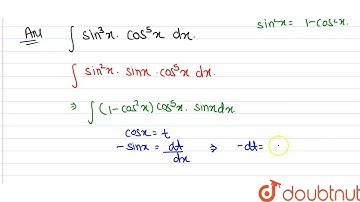 Ans ∫ sin³x. cos⁵x dx. sin²x = 1-cos²x.
∫ sin²x. sinx. cos⁵x dx.
⇒ ∫ (1-cos²x) cos⁵x. sinx dx
cosx = t
-sinx = dt/dx ⇒ -dt = (
doubtnut